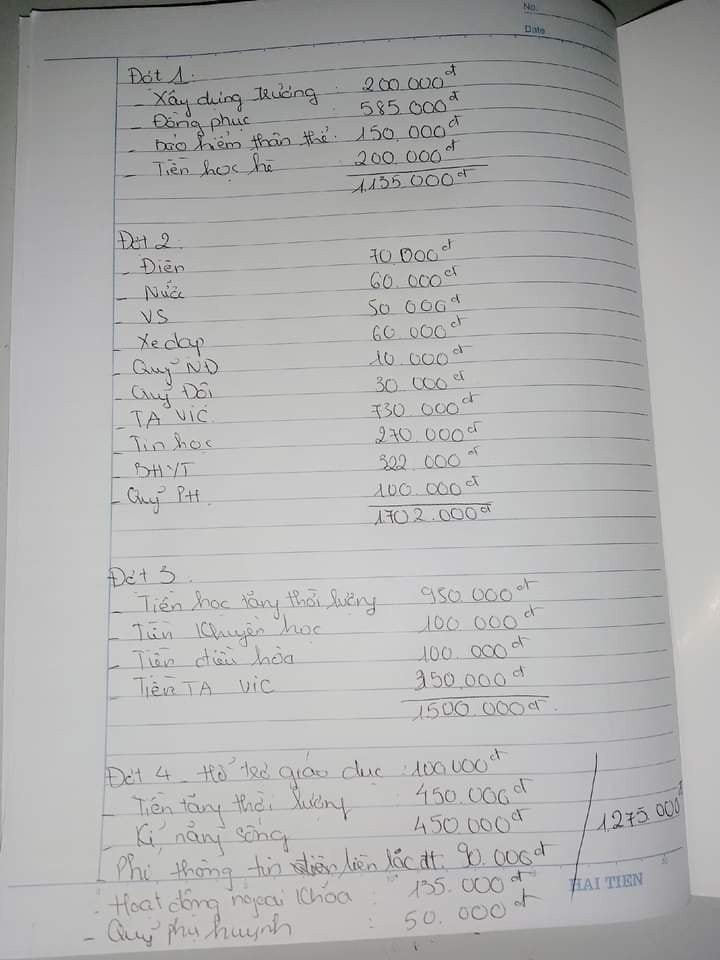 No.
Date
Đợt 1:
- Xây dựng trường : 200.000đ
- Đồng phục : 585.000đ
- Bảo hiểm thân thể : 150.000đ
- Tiền học hè 200.000đ
1.135.000đ
Đợt 2:
- Điện 70.000đ
- Nước 60.000đ
- VS 50.000đ
- Xe đạp 60.000đ
- Quỹ NĐ 10.000đ
- Quỹ Đội 30.000đ
- TA VIC 730.000đ
- Tin học 270.000đ
- BHYT 322.000đ
- Quỹ PH 100.000đ
1702.000đ
Đợt 3:
- Tiền học tăng thời lượng 950.000đ
- Tiền Khuyến học 100.000đ
- Tiền điều hòa 100.000đ
- Tiền TA VIC 350.000đ
1500.000đ
Đợt 4 - Hổ trợ giáo dục : 100.000đ
- Tiền tăng thời lượng : 450.000đ
- Kĩ năng sống 450.000đ
1.275.000đ
- Phí thông tin liên lạc đt: 90.000đ
- Hoạt động ngoại khóa : 135.000đ
- Quỹ phụ huynh : 50.000đ
HẢI TIẾN